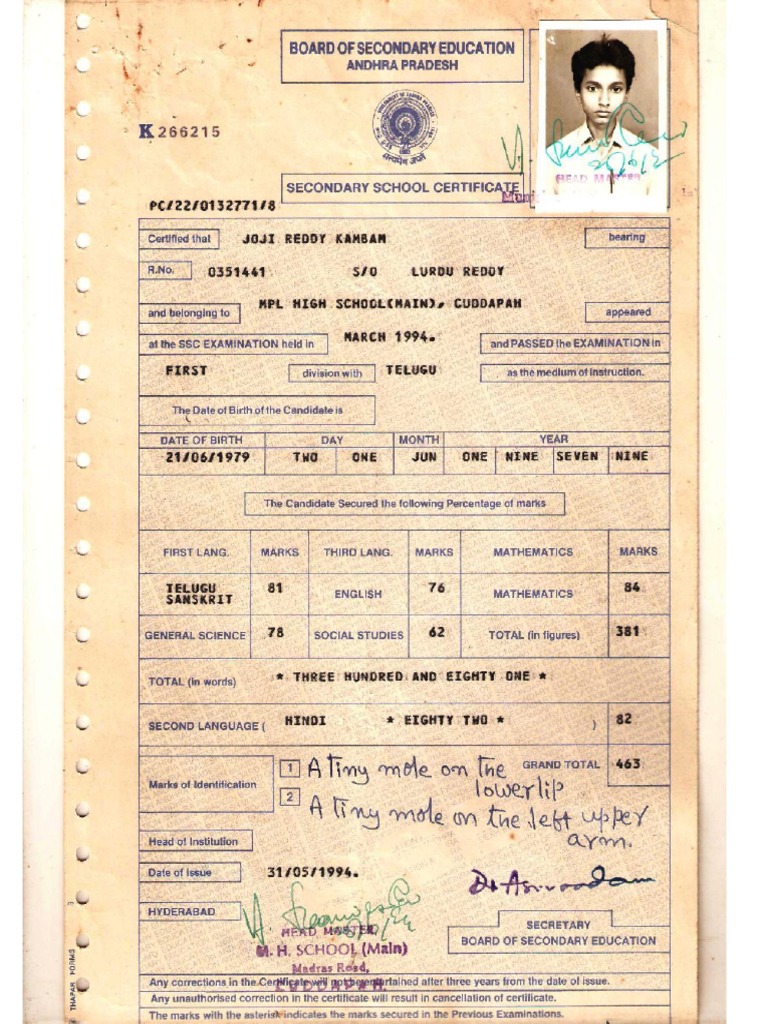 BOARD OF SECONDARY EDUCATION
ANDHRA PRADESH
K 266215
सत्यमेव जयते
HEAD MASTER
SECONDARY SCHOOL CERTIFICATE
PC/22/0132771/8
Certified that JOJI REDDY KAMBAM bearing
R.No. 0351441 S/O LURDU REDDY
and belonging to MPL HIGH SCHOOL(MAIN), CUDDAPAH appeared
at the SSC EXAMINATION held in MARCH 1994. and PASSED the EXAMINATION in
FIRST division with TELUGU as the medium of Instruction.
The Date of Birth of the Candidate is
DATE OF BIRTH DAY MONTH YEAR
21/06/1979 TWO ONE JUN ONE NINE SEVEN NINE
The Candidate Secured the following Percentage of marks
FIRST LANG. MARKS THIRD LANG. MARKS MATHEMATICS MARKS
TELUGU SANSKRIT 81 ENGLISH 76 MATHEMATICS 84
GENERAL SCIENCE 78 SOCIAL STUDIES 62 TOTAL (in figures) 381
TOTAL (in words) * THREE HUNDRED AND EIGHTY ONE *
SECOND LANGUAGE ( HINDI * EIGHTY TWO * ) 82
GRAND TOTAL 463
Marks of Identification
1 A Tiny mole on the lower lip
2 A tiny mole on the left upper arm.
Head of Institution
Date of Issue 31/05/1994.
HYDERABAD
HEAD MASTER
M. H. SCHOOL (Main)
Madras Road,
CUDDAPAH.
SECRETARY
BOARD OF SECONDARY EDUCATION
Any corrections in the Certificate will not be entertained after three years from the date of issue.
Any unauthorised correction in the certificate will result in cancellation of certificate.
The marks with the asterisk indicates the marks secured in the Previous Examinations.
THAPAR FORMS